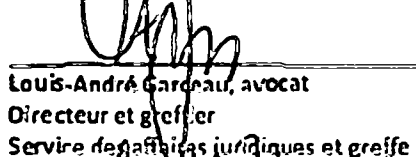 Louis-André Garceau, avocat
Directeur et greffier
Service des affaires juridiques et greffe